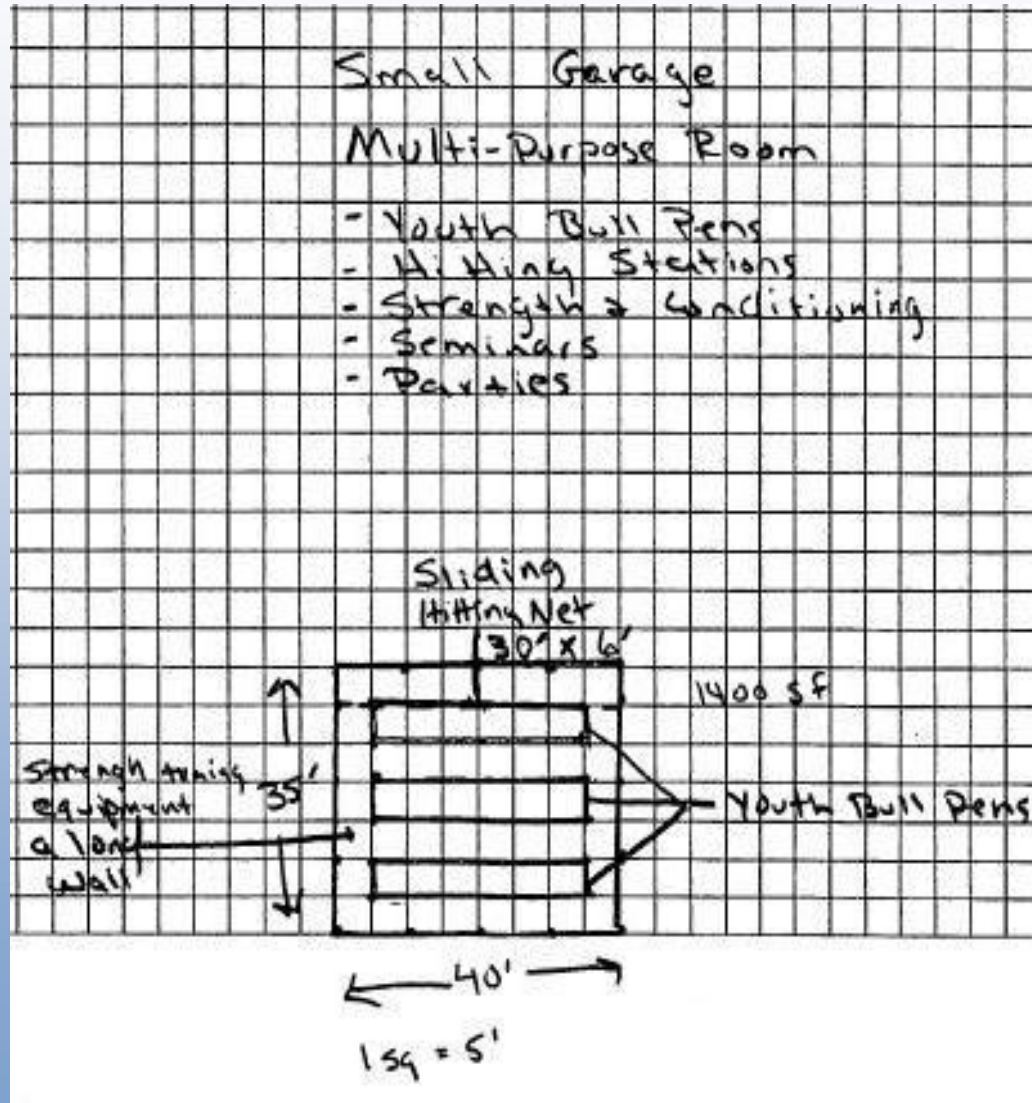 Small Garage
Multi-Purpose Room
- Youth Bull Pens
- Hitting Stations
- Strength & Conditioning
- Seminars
- Parties
Sliding
Hitting Net
30' x 6'
1400 sf
equipment
along
wall
35'
Youth Bull Pens
40'
1 sq = 5'